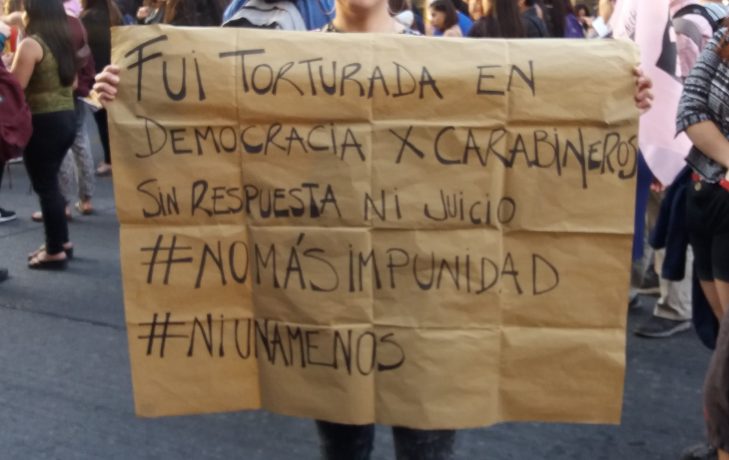 FUI TORTURADA EN
DEMOCRACIA X CARABINEROS
SIN RESPUESTA NI JUICIO
#NOMÁSIMPUNIDAD
#NIUNAMENOS